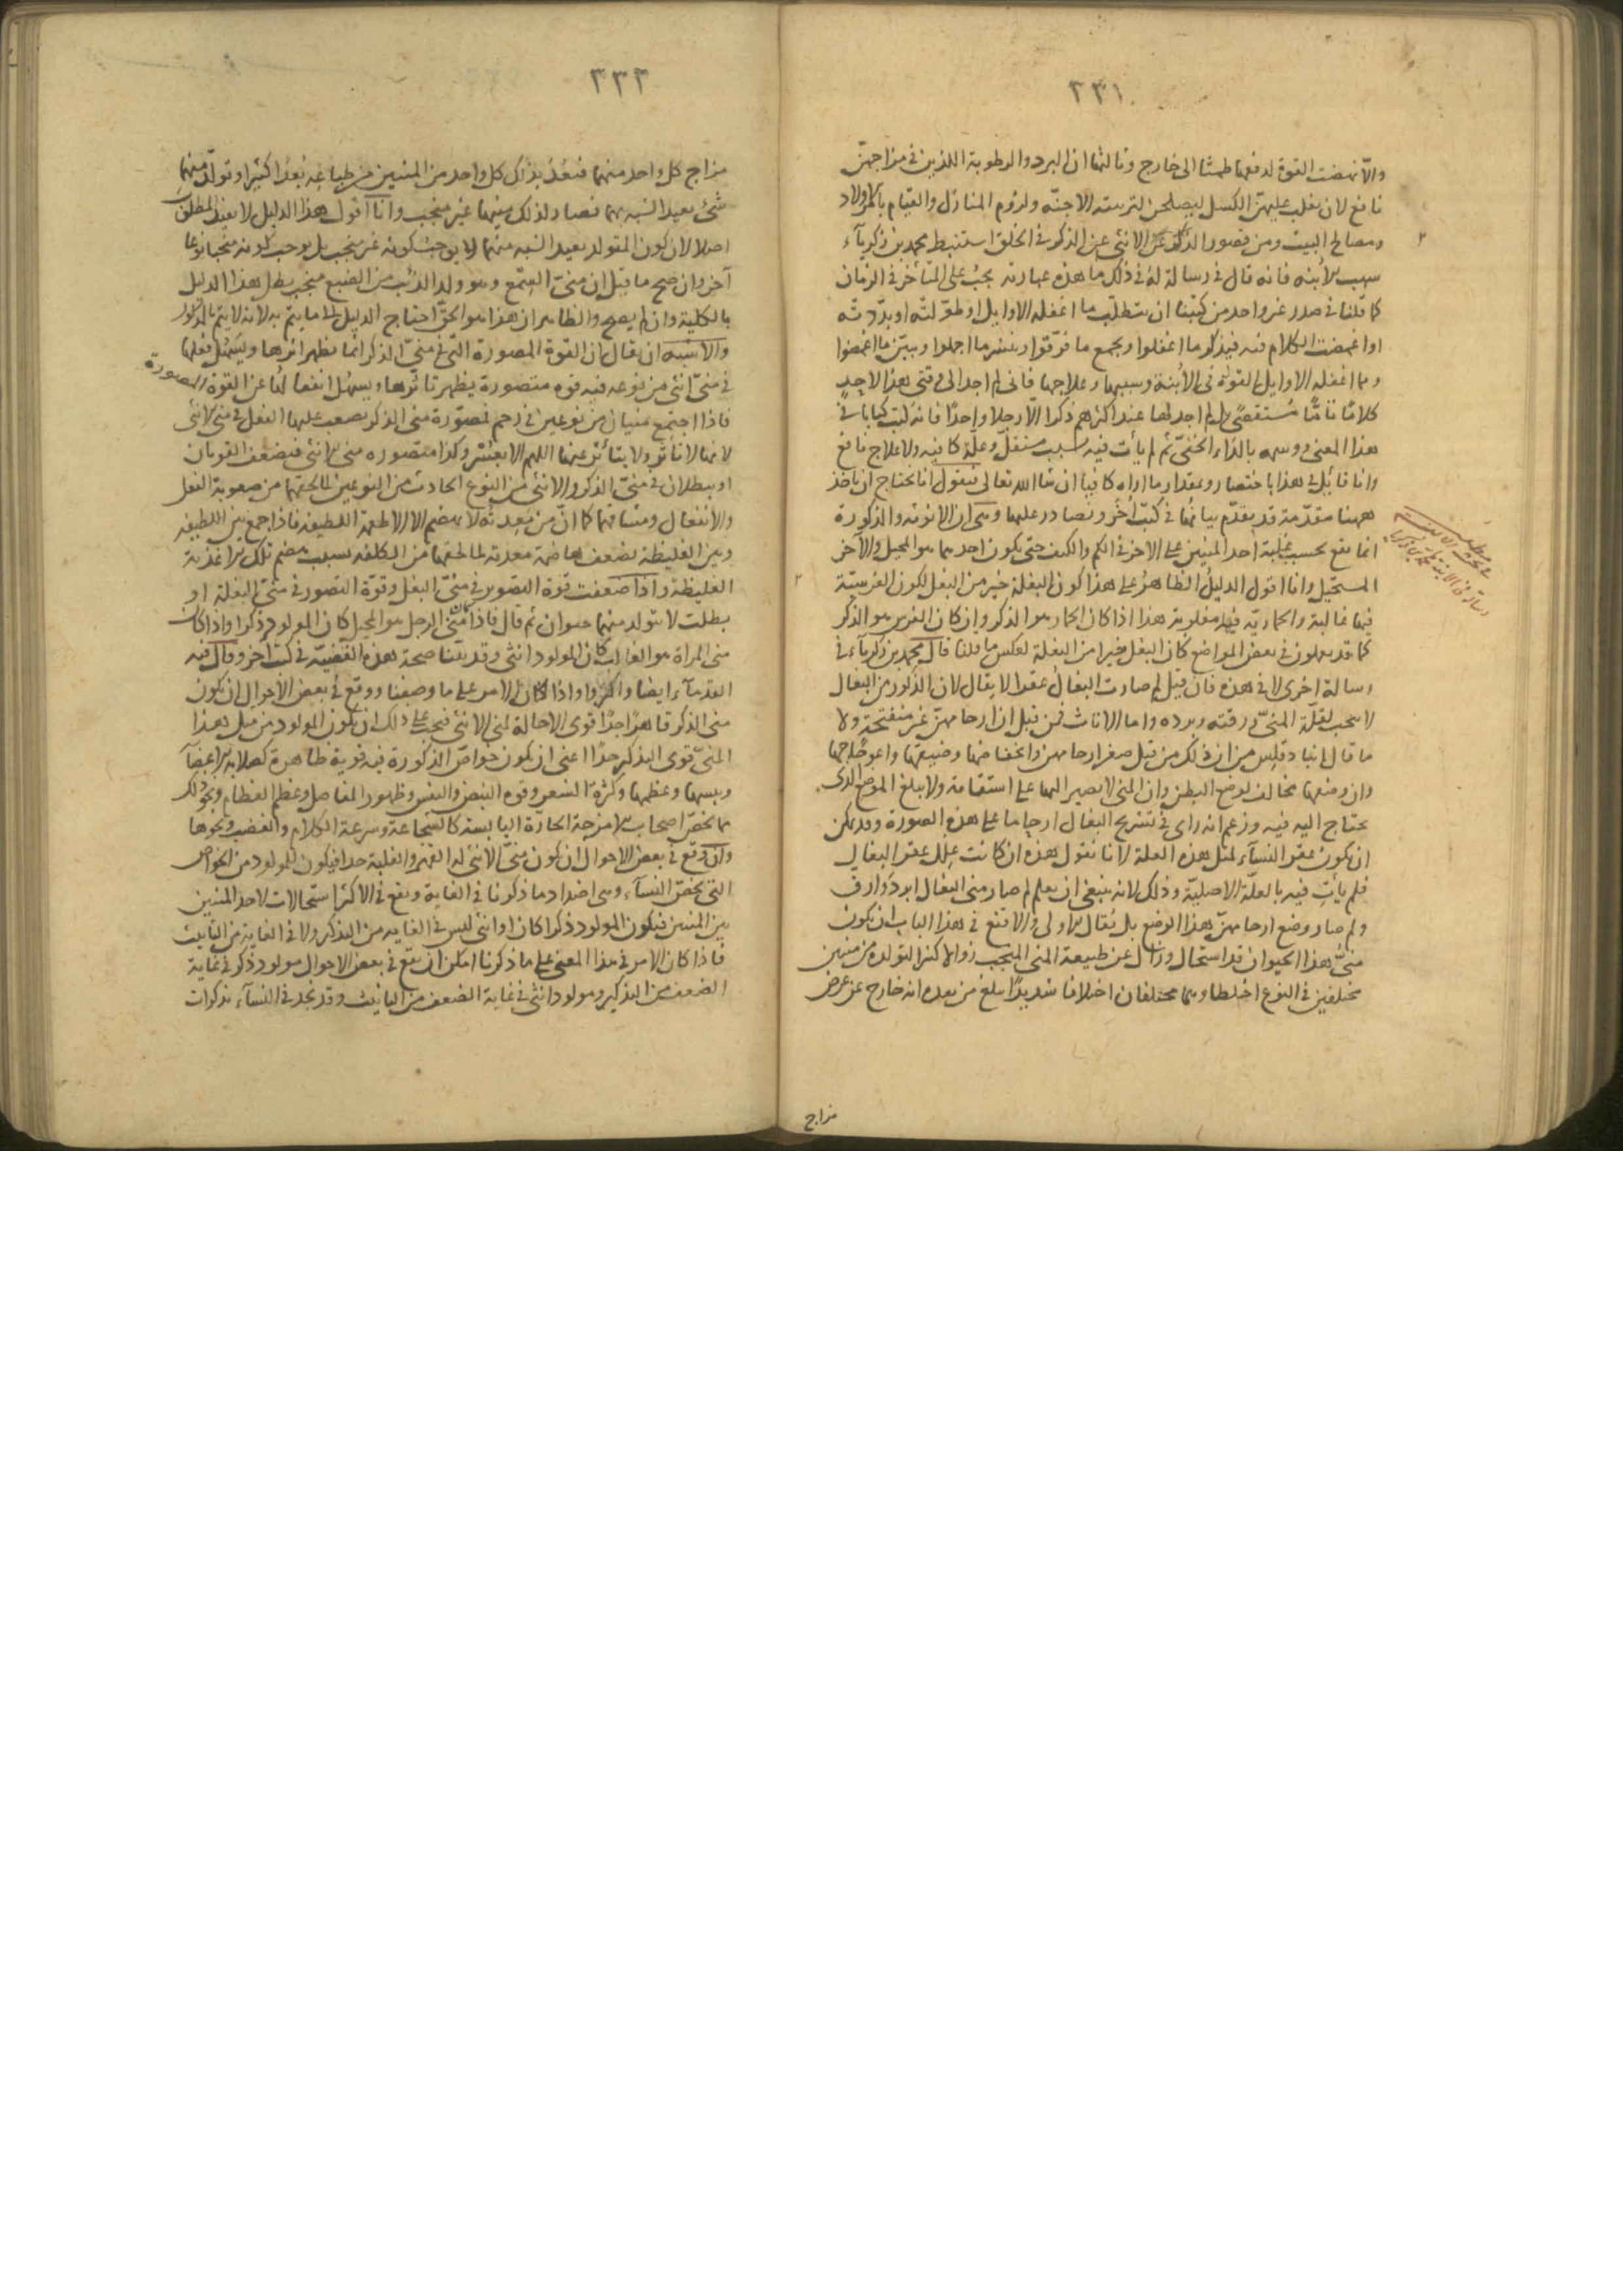 ٣٣١
والّا نهضت القوة لدفعها طمثا الى خارج وثالثها ان البرد والرطوبة اللذين في مزاجهنّ
نافع لان يغلب عليهنّ الكسل ليصلحن لتربية الاجنّه ولزوم المنازل والقيام بالاولاد
ومصالح البيت ومن قصور الذكر عن الانثى في الخلق استنبط محمد بن زكريآء
سبب الأُبنه فانه قال في رسالة له في ذلك ما هذه عبارته يجبُ على المتأخر في الزمان
كما قلنا في صدر غير واحد من كتبنا ان يتطلّب ما اغفله الاوايل او طوّلته او بدّدته
او اغمضت الكلام فيه فيذكر ما اغفلوا ويجمع ما فرّقوا وينشر ما اجملوا ويبيّن ما اغمضوا
ومما اغفله الاوايل القول في الأُبنة وسببها وعلاجها فانى لم اجد الى وقتى هذا لاحدٍ
كلامًا تامًّا مُستقصًى بل لم اجد لها عند اكثرهم ذكرا الّا رجلا واحدًا فانه كتب كتابا في
هذا المعنى ووسمه بالداء الخفىّ ثم لم يأت فيه بسبب مستقلّ وعلّة كافيه ولا علاج نافع
وانا قائل في هذا باختصار وبمقدار ما اراه كافيا ان شا الله تعالى فنقول انا نحتاج ان ناخذ
ههنا مقدّمة قد تقدّم بيانها في كتب أُخَر ونصادر عليها وهى ان الانوثه والذكورة
انما تقع بحسب غلبة احد المنيين على الآخر في الكم والكيف حتى يكون احدهما هو المحيل والآخر
المستحيل وانا اقول الدليلُ الظاهرُ على هذا كون البغلة خير من البغل لكون الفرسيّة
فيها غالبة والحماريّه فيها مغلوبة هذا اذا كان الحمار هو الذكر وان كان الفرس هو الذكر
كما قد يعملون في بعض المواضع كان البغل خيرا من البغلة لعكس ما قلنا قال محمد بن زكريآء في
رسالة اخرى لا في هذه فان قيل لم صارت البغالُ عقرا لا يقال لان الذكور من البغال
لا ينجب لقلّة المنىّ ورقته وبرده واما الاناث فمن قبل ان ارحامهنّ غير منفتحة ولا
ما قال انبادقليس من ان ذلك من قبل صغر ارحامهن وانخفاضها وضيقها واعوجاجها
وان وضعها مخالف لوضع البطن وان المنى لا يصير اليها على استقامة ولا يبلغ الموضع الذى
يحتاج اليه فيه وزعم انه راى في تشريح البغال ارحاما على هذه الصورة وقد يمكن
ان يكون عقر النسآء لمثل هذه العلة لانا نقول هذه ان كانت عِلل عقر البغال
فلم يأتِ فيه بالعلّة الاصليّة وذلك لانه ينبغى ان يعلم لم صار منى البغال ابرد وارق
ولم صار وضع ارحامهنّ هذا الوضع بل يُقال الاولى والاقنع في هذا الباب ان يكون
منىّ هذا الحيوان قد استحال وزال عن طبيعة المنى المنجب زوالا كثيرا لتولده من منيين
مختلفين في النوع اختلطا وهما مختلفان اختلافا شديدًا بلغ من بعده انه خارج عن عرض
مزاج
٣٣٣
مزاج كل واحد منهما فبَعُدَ بذاك كل واحد من المنيين من طباعه بُعدًا كثيرا وتولّد منهما
شئ بعيد الشبه بهما فصار لذلك منيهما غير منجب وانا اقول هذا الدليل لا يفيد المطلوب
اصلا لان كون المتولد بعيد الشبه منهما لا يوجب كونه غير منجب بل يوجب كونه منجبا نوعا
آخر وان صح ما قيل ان منىّ السِمع وهو ولد الذئب من الضبع منجب بطل هذا الدليل
بالكلية وان لم يصح والظاهر ان هذا هو الحقّ احتاج الدليل الى ما يتمّ به لانه لا يتم بالمذكور
والاشبه ان يقال ان القوة المصورة التى في منىّ الذكر انما يظهر اثرها ويسهُل فعلها
في منىّ انثى من نوعه فيه قوه متصورة يظهر تاثرها ويسهُل انفعالها عن القوة المصورة
فاذا اجتمع منيان من نوعين في رحم فمصوّرة منى الذكر يصعب عليها الفعل في منى الانثى
لانها لا تاثر ولا يتأثر عنها اللهم الا بعُسر وكذا متصوره منى الانثى فيضعف القوتان
او يبطلان في منىّ الذكر والانثى من النوع الحادث من النوعين لما يلحقهما من صعوبة الفعل
والانفعال ومشاقّهما كما انّ مَن مَعِدَتُه لا تهضم الا الاطعمة اللطيفه فاذا جمع بين اللطيفه
وبين الغليظة يضعف هاضمة معدته لما لحقها من الكلفه بسبب هضم تلك الاغذية
الغليظة واذا ضعفت قوّة التصوير في منىّ البغل وقوّة التصور في منىّ البغلة او
بطلت لا يتولد منهما حيوان ثم قال فاذا كان منى الرجل هو المحيل كان المولود ذكرا واذا كان
منى المراة هو الغالب كان المولود انثى وقد بيّنا صحة هذه القضيّه في كتب أُخر وقال فيه
القدمآء ايضا واكثروا واذا كان الامر على ما وصفنا ووقع في بعض الاحوال ان يكون
منى الذكر قاهرًا جدًا قوى الاحالة لمنى الانثى فيجب على ذلك ان يكون المولود من مثل هذا
المنىّ قوى التذكير جدًا اعنى ان يكون خواصّ الذكورة فيه قوية ظاهرة كصلابة الاعضآء
ويبسها وعظمها وكثرة الشعر وقوه النبض والنفس وظهور المفاصل وعظم العظام ونحو ذلك
مما يخصّ اصحاب الامزجة الحارّة اليابسة كالشجاعة وسرعة الكلام والغضب ونحوها
وان وقع في بعض الاحوال ان يكون منىّ الانثى له القهر والغلبة جدا فيكون للمولود من الخواص
التى يخصّ النسآء وهى اضداد ما ذكرنا في الغاية ويقع في الاكثر استحالات لاحد المنيين
بين المنيين فيكون المولود ذكرا كان او انثى ليس في الغايه من التذكير ولا في الغاية من التأنيث
فاذا كان الامر في هذا المعنى على ما ذكرنا امكن ان يقع في بعض الاحوال مولود ذكر في غاية
الضعف من التذكير ومولود انثى في غاية الضعف من التانيث وقد نجد في النسآء مذكرات